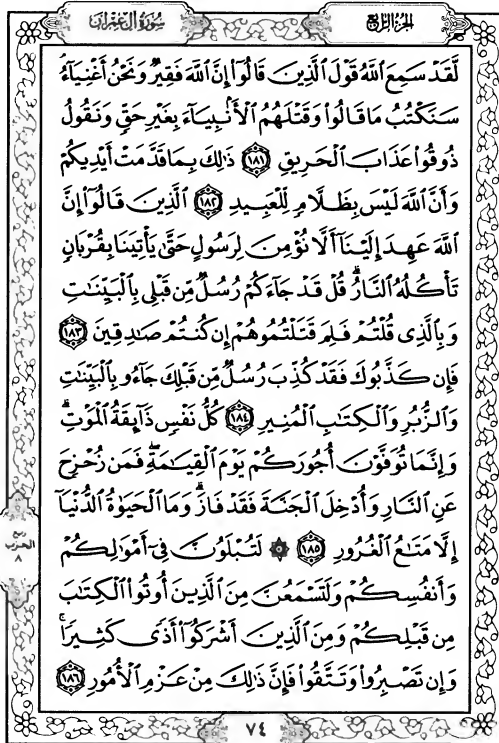 سُورَةُ آلِ عِمْرَانَ
الجُزْءُ الرَّابِع
لَّقَدْ سَمِعَ ٱللَّهُ قَوْلَ ٱلَّذِينَ قَالُوٓا۟ إِنَّ ٱللَّهَ فَقِيرٌ وَنَحْنُ أَغْنِيَآءُ
سَنَكْتُبُ مَا قَالُوا۟ وَقَتْلَهُمُ ٱلْأَنۢبِيَآءَ بِغَيْرِ حَقٍّ وَنَقُولُ
ذُوقُوا۟ عَذَابَ ٱلْحَرِيقِ ١٨١ ذَٰلِكَ بِمَا قَدَّمَتْ أَيْدِيكُمْ
وَأَنَّ ٱللَّهَ لَيْسَ بِظَلَّامٍ لِّلْعَبِيدِ ١٨٢ ٱلَّذِينَ قَالُوٓا۟ إِنَّ
ٱللَّهَ عَهِدَ إِلَيْنَآ أَلَّا نُؤْمِنَ لِرَسُولٍ حَتَّىٰ يَأْتِيَنَا بِقُرْبَانٍ
تَأْكُلُهُ ٱلنَّارُ ۗ قُلْ قَدْ جَآءَكُمْ رُسُلٌ مِّن قَبْلِى بِٱلْبَيِّنَٰتِ
وَبِٱلَّذِى قُلْتُمْ فَلِمَ قَتَلْتُمُوهُمْ إِن كُنتُمْ صَٰدِقِينَ ١٨٣
فَإِن كَذَّبُوكَ فَقَدْ كُذِّبَ رُسُلٌ مِّن قَبْلِكَ جَآءُو بِٱلْبَيِّنَٰتِ
وَٱلزُّبُرِ وَٱلْكِتَٰبِ ٱلْمُنِيرِ ١٨٤ كُلُّ نَفْسٍ ذَآئِقَةُ ٱلْمَوْتِ ۗ
وَإِنَّمَا تُوَفَّوْنَ أُجُورَكُمْ يَوْمَ ٱلْقِيَٰمَةِ ۖ فَمَن زُحْزِحَ
عَنِ ٱلنَّارِ وَأُدْخِلَ ٱلْجَنَّةَ فَقَدْ فَازَ ۗ وَمَا ٱلْحَيَوٰةُ ٱلدُّنْيَآ
إِلَّا مَتَٰعُ ٱلْغُرُورِ ١٨٥ ۞ لَتُبْلَوُنَّ فِىٓ أَمْوَٰلِكُمْ
وَأَنفُسِكُمْ وَلَتَسْمَعُنَّ مِنَ ٱلَّذِينَ أُوتُوا۟ ٱلْكِتَٰبَ
مِن قَبْلِكُمْ وَمِنَ ٱلَّذِينَ أَشْرَكُوٓا۟ أَذًى كَثِيرًا ۚ
وَإِن تَصْبِرُوا۟ وَتَتَّقُوا۟ فَإِنَّ ذَٰلِكَ مِنْ عَزْمِ ٱلْأُمُورِ ١٨٦
ربع
الحزب
٨
٧٤